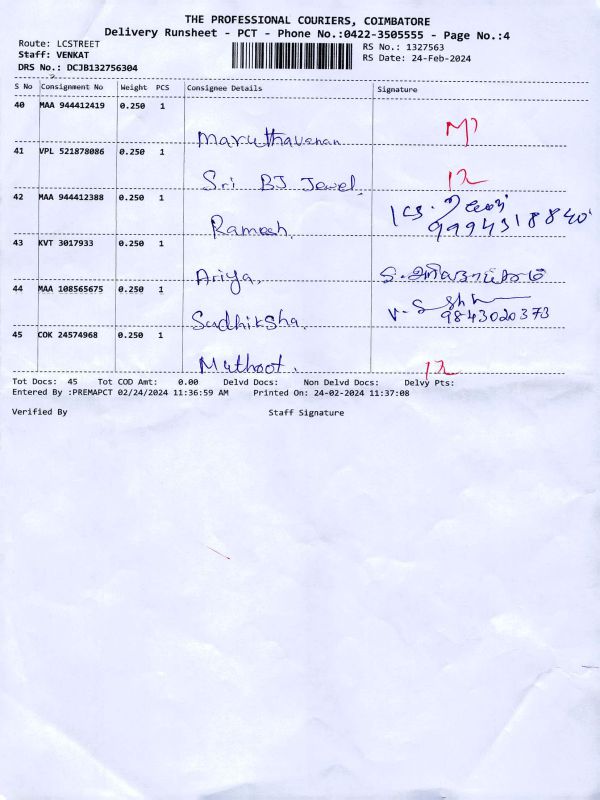 THE PROFESSIONAL COURIERS, COIMBATORE
Delivery Runsheet - PCT - Phone No.:0422-3505555 - Page No.:4
Route: LCSTREET
RS No.: 1327563
Staff: VENKAT
RS Date: 24-Feb-2024
DRS No.: DCJB132756304
S No Consignment No Weight PCS Consignee Details Signature
40 MAA 944412419 0.250 1
Maruthavanan
41 VPL 521878086 0.250 1
Sri BJ Jewel
42 MAA 944412388 0.250 1
Ramesh. 9994318840
43 KVT 3017933 0.250 1
Ariya.
44 MAA 108565675 0.250 1
Sudhiksha. 9843020373
45 COK 24574968 0.250 1
Muthoot.
Tot Docs: 45 Tot COD Amt: 0.00 Delvd Docs: Non Delvd Docs: Delvy Pts:
Entered By :PREMAPCT 02/24/2024 11:36:59 AM Printed On: 24-02-2024 11:37:08
Verified By Staff Signature